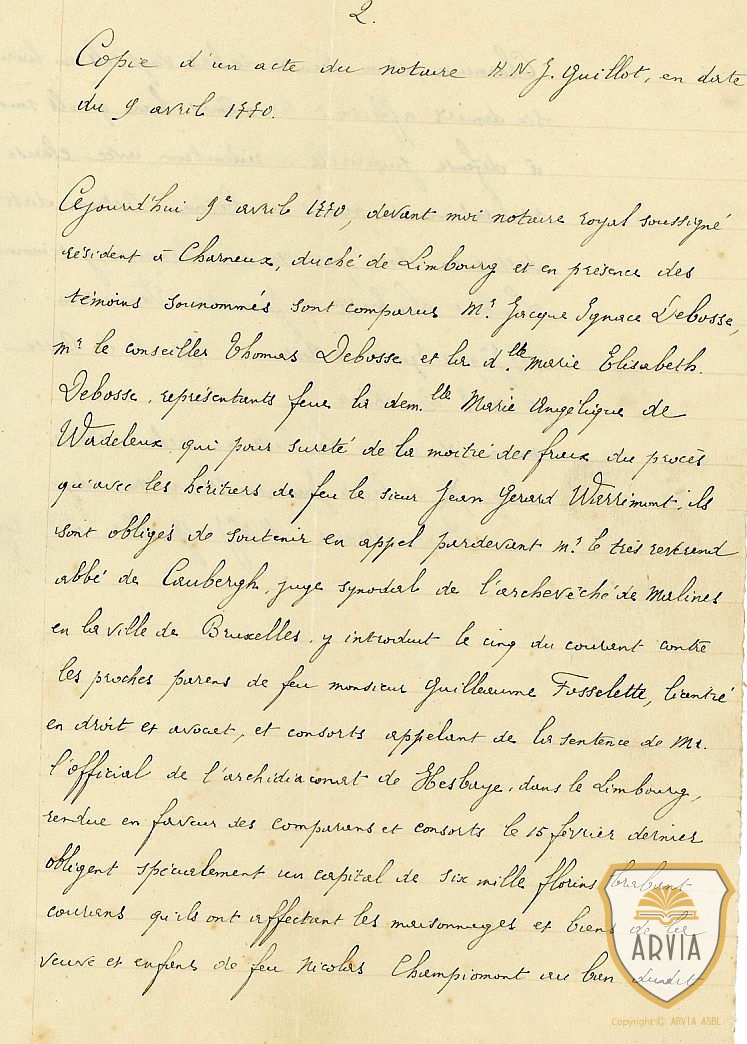 2.
Copie d'un acte du notaire H. N. J. Guillot, en date
du 9 avril 1770.
Cejourd'hui 9e avril 1770, devant moi notaire royal soussigné
résident à Charneux, duché de Limbourg et en présence des
témoins sounommés sont comparus Mr. Jacque Ignace Debosse,
mr le conseiller Thomas Debosse et la d.lle Marie Elisabeth
Debosse, représentants feue la dem.lle Marie Angélique de
Wadeleux, qui pour sureté de la moitié des fraix du procès
qu'avec les héritiers de feu le sieur Jean Gerard Werrimont, ils
sont obligés de soutenir en appel pardevant mr. le très révérend
abbé de Caubergh, juge synodal de l'archevêché de Malines
en la ville de Bruxelles, y introduit le cinq du courant contre
les proches parens de feu monsieur Guilleaume Fosselette, licentié
en droit et avocat, et consorts appelant de la sentence de Mr.
l'official de l'archidiaconat de Hesbaye, dans le Limbourg,
rendue en faveur des comparans et consorts le 15 février dernier
obligent spécialement un capital de six mille florins brabant
courans qu'ils ont affectant les maisonnages et biens de la
veuve et enfans de feu Nicolas Championont au bien dudit
ARVIA
Copyright © ARVIA ASBL